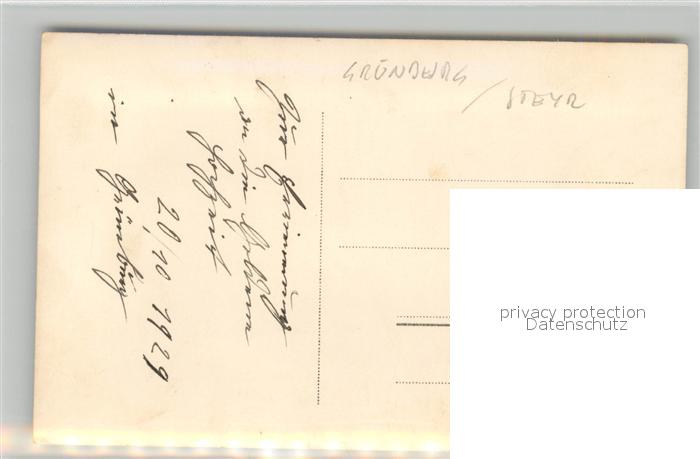 GRÜNBURG
/ STEYR
Zur Erinnerung
an die Goldene
Hochzeit
20/10 1929
in Grünburg
privacy protection
Datenschutz